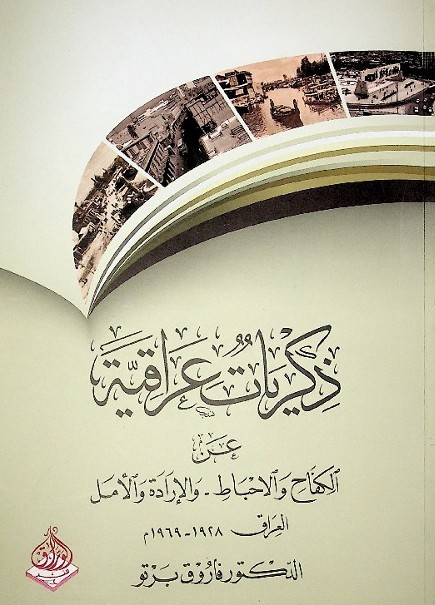 ذكريات عراقية
عن
الكفاح والاحباط - والإرادة والأمل
العراق ١٩٢٨ - ١٩٦٩م
الدكتور فاروق برتو
الوراق